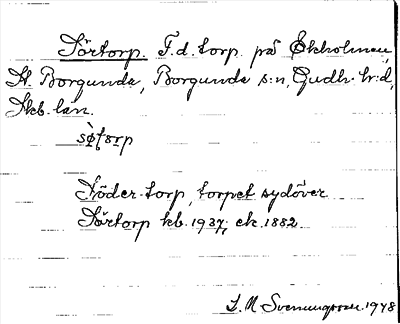 Sörtorp. F.d. torp på Ekholmen,
St Borgunda, Borgunda s:n, Gudh. hr:d,
Skb. län.
sö̀ʈɔrp
Söder-torp, torpet sydöver
Sörtorp kb. 1937, ek. 1882
S. M Svenungsson 1948